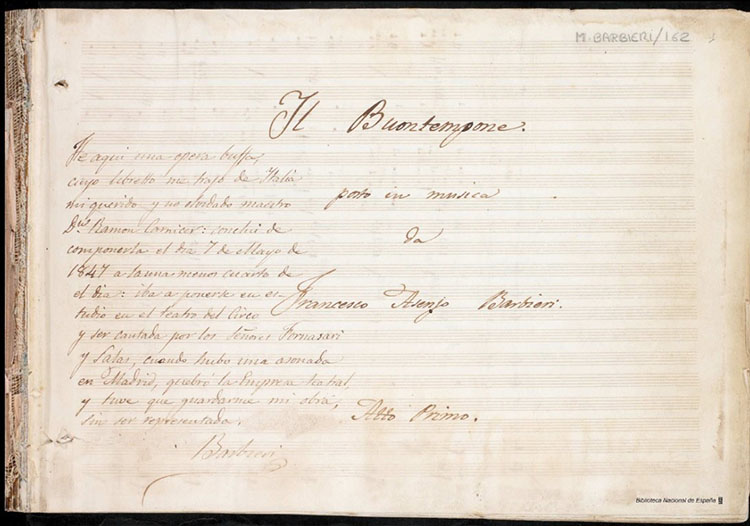 M. BARBIERI/162
Il Buontempone.
posto in musica
da
Francesco Asenjo Barbieri.
Atto Primo.
He aqui una opera buffa,
cuyo libretto me trajo de Italia
mi querido y no olvidado maestro
Dn. Ramon Carnicer: concluí de
componerla el dia 7 de Mayo de
1847 a la una menos cuarto de
el dia: iba a ponerse en es
tudio en el teatro del Circo
y ser cantada por los Señores Fornasari
y Salas, cuando hubo una asonada
en Madrid, quebró la Empresa teatral
y tuve que guardarme mi obra,
sin ser representada.
Barbieri
Biblioteca Nacional de España